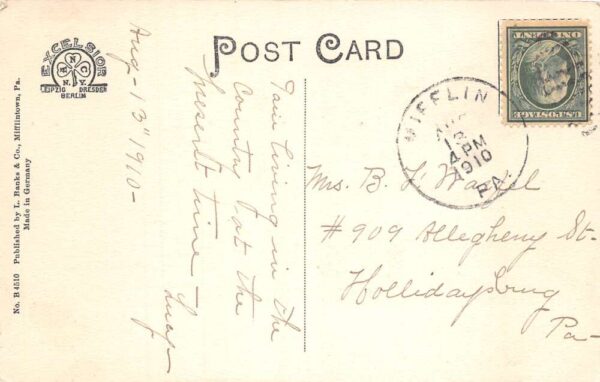 POST CARD
EXCELSIOR
M N C
N.Y.
LEIPZIG DRESDEN
BERLIN
No. B 4510 Published by L. Banks & Co., Mifflintown, Pa.
Made in Germany
Aug - 13" 1910 -
I am living in the
Country at the
Present time -
Lucy -
MIFFLIN
AUG
13
4 PM
1910
PA.
U.S. POSTAGE
ONE CENT
Mrs. B. F.
# 909 Allegheny St.
Hollidaysburg
Pa -